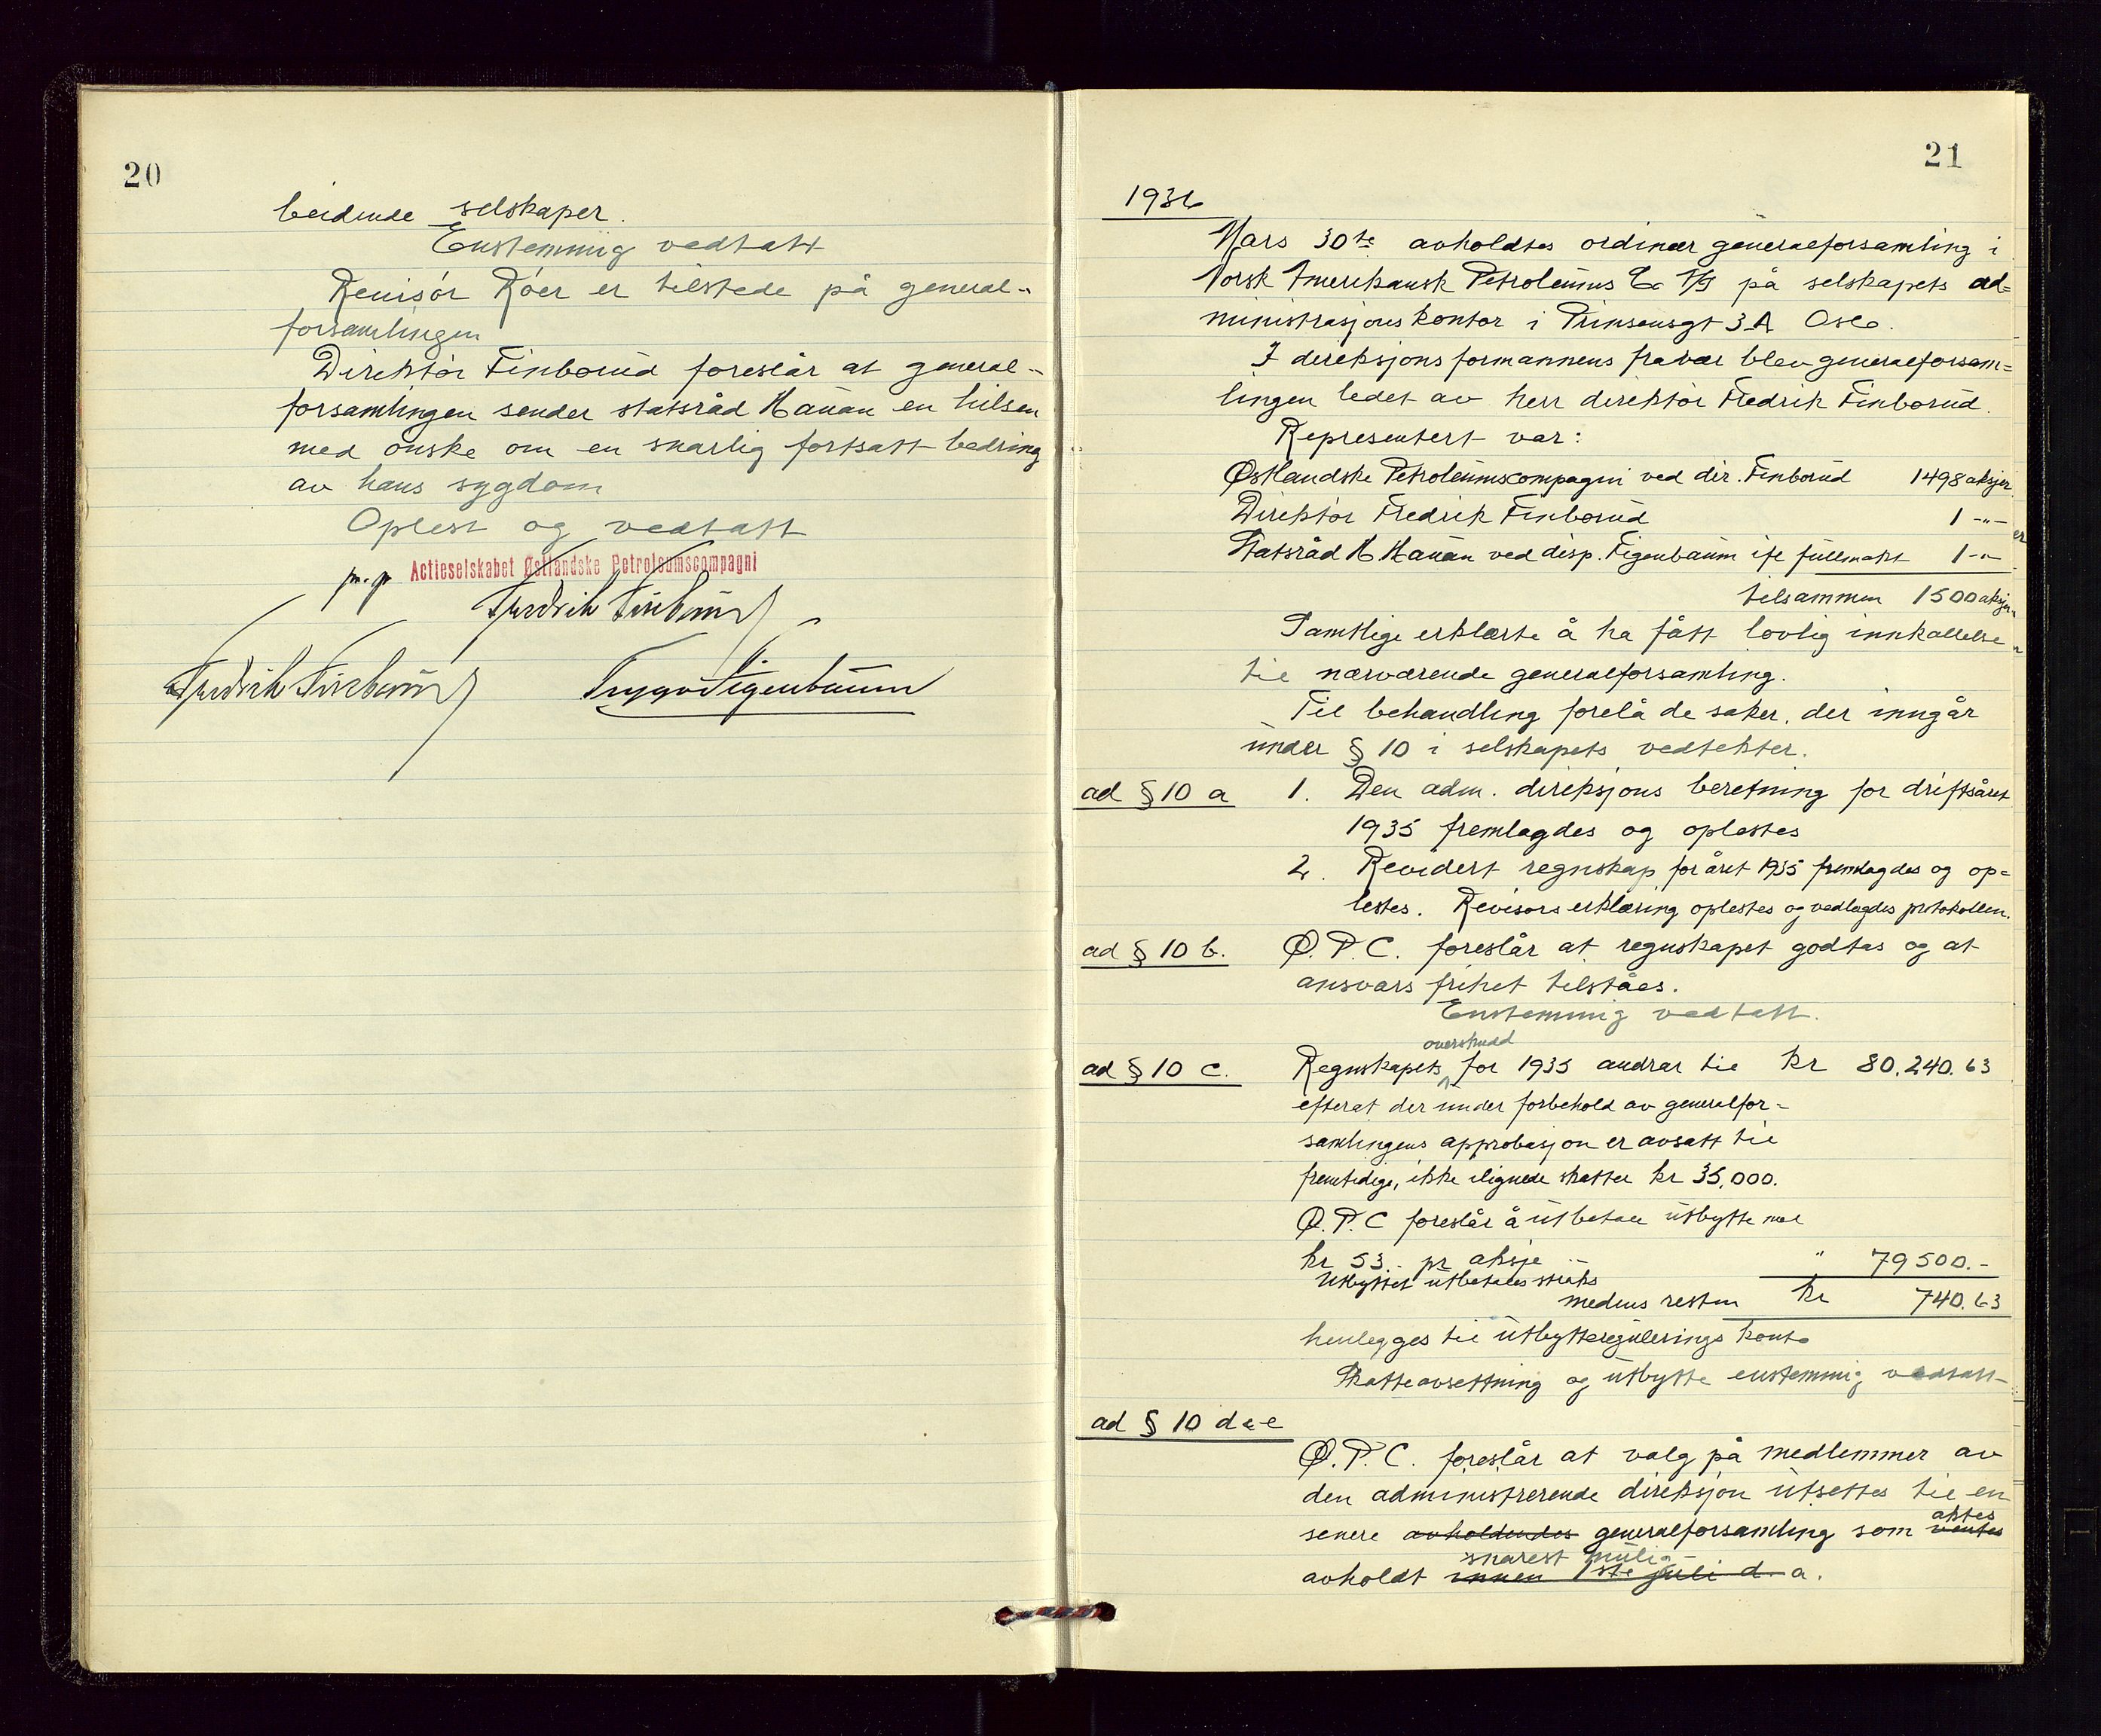 20
beidende selskaper.
Enstemmig vedtatt
Revisór Róer er tilstede på general-
forsamlingen
Direktór Finborud foreslår at general-
forsamlingen sender statsråd Hauan en hilsen
med ønske om en snarlig fortsatt bedring
av hans sygdom
Oplest og vedtatt
pr. pr. Actieselskabet Østlandske Petroleumscompagni
Fredrik Finborud
Fredrik Finborud Trygve Figenbaum
21
1936
Mars 30te avholdtes ordinær generalforsamling i
Norsk Amerikansk Petroleums Co A/S på selskapets ad=
ministrasjonskontor i Prinsensgt 3A Oslo.
I direksjonsformannens fravær blev generalforsam=
lingen ledet av herr direktór Fredrik Finborud.
Representert var:
Østlandske Petroleumscompagni ved dir. Finborud 1498 aksjer
Direktór Fredrik Finborud 1 -"-
Statsråd H Hauan ved disp. Figenbaum ifl fullmakt 1 -"-
tilsammen 1500 aksjer
Samtlige erklærte å ha fått lovlig innkallelse
til nærværende generalforsamling.
Til behandling forelå de saker, der inngår
under § 10 i selskapets vedtekter.
ad § 10 a 1. Den adm. direksjons beretning for driftsåret
1935 fremlagdes og oplestes
2. Revidert regnskap for året 1935 fremlagdes og op=
lestes. Revisors erklæring oplestes og vedlagdes protokollen.
ad § 10 b. Ø.P.C. foreslår at regnskapet godtas og at
ansvarsfrihet tilståes.
Enstemmig vedtatt.
overskudd
ad § 10 c. Regnskapets for 1935 andrar til kr 80.240.63
efterat der under forbehold av generalfor-
samlingens approbasjon er avsatt til
fremtidige, ikke ilignede skatter kr 35,000.
Ø.P.C foreslår å utbetale utbytte med
kr 53.- pr aksje " 79500.-
Utbyttet utbetales straks
medens resten kr 740.63
henlegges til utbyttereguleringskonto
Skatteavsettning og utbytte enstemmig vedtatt
ad § 10 d & e
Ø.P.C. foreslår at valg på medlemmer av
den administrerende direksjon utsettes til en
aktes
senere avholdendes generalforsamling som ventes
snarest mulig
avholdt innen 1ste juli d. a.